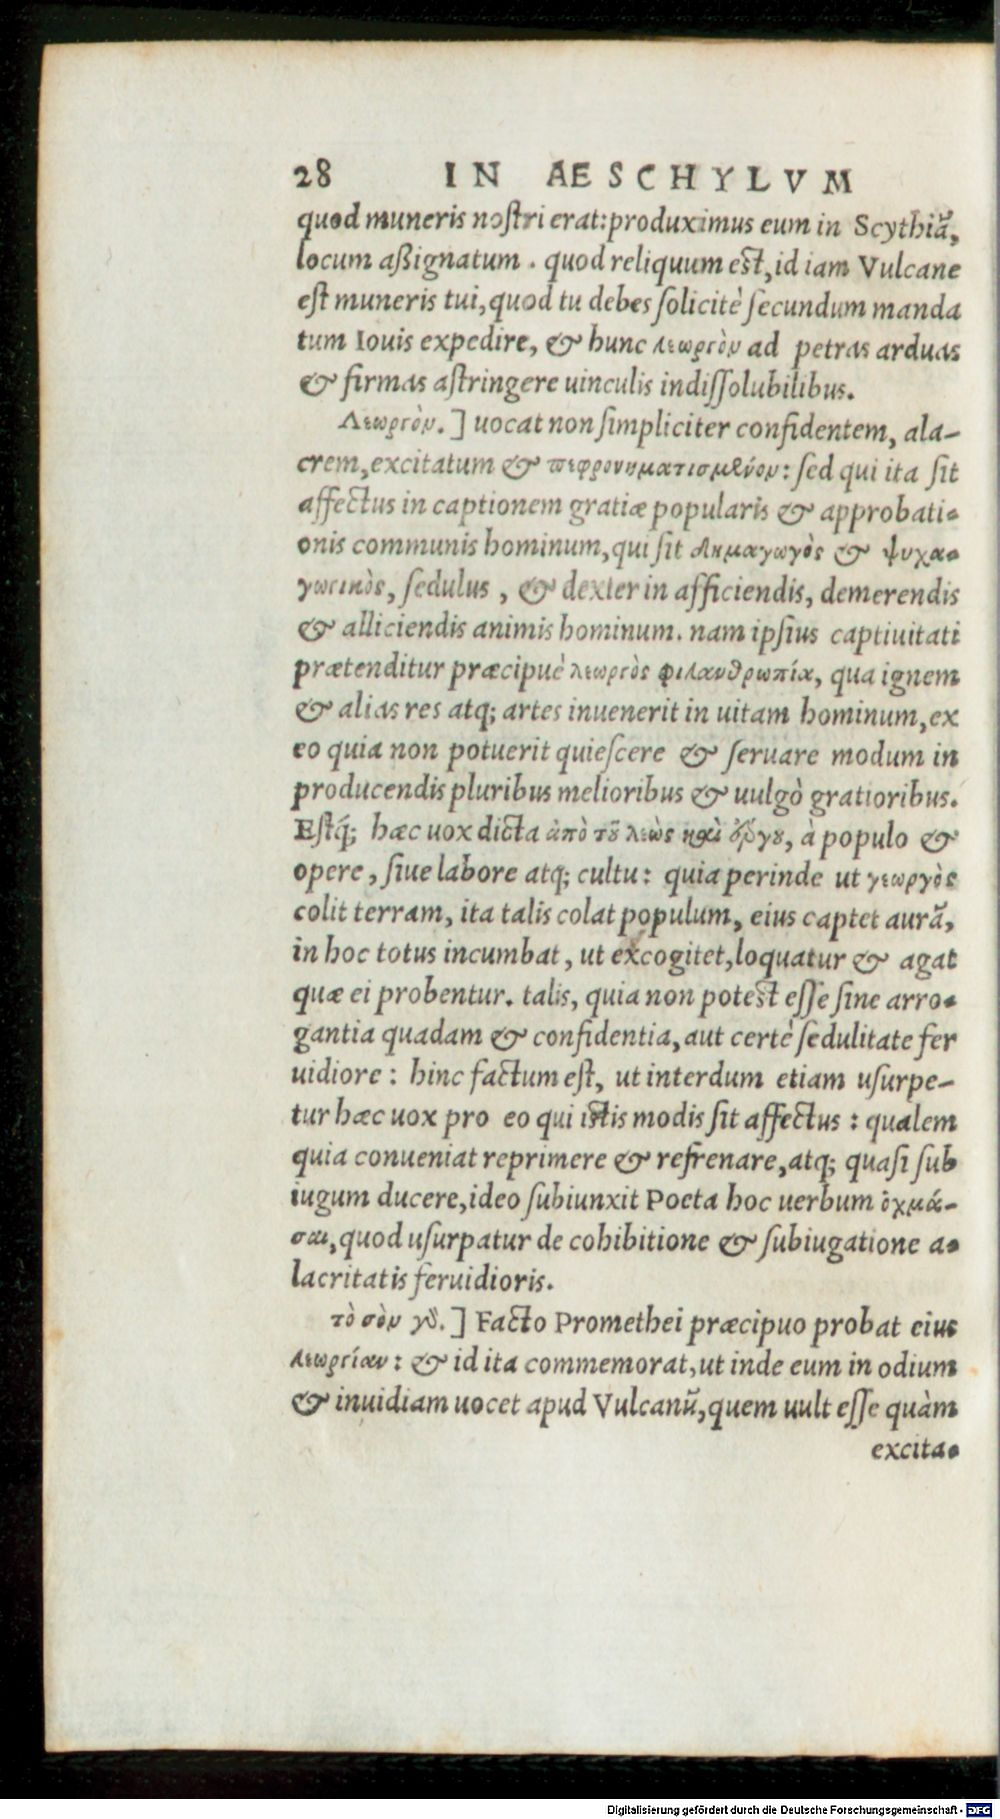 28 IN AESCHYLVM
quod muneris nostri erat: produximus eum in Scythiã,
locum aßignatum. quod reliquum est, id iam Vulcane
est muneris tui, quod tu debes solicitè secundum manda
tum Iouis expedire, & hunc λεωργὸν ad petras arduas
& firmas astringere uinculis indissolubilibus.
Λεωργὸν.] uocat non simpliciter confidentem, ala-
crem, excitatum & πεφρονηματισμένον: sed qui ita sit
affectus in captionem gratiæ popularis & approbati-
onis communis hominum, qui sit δημαγωγὸς & ψυχα-
γωγικὸς, sedulus, & dexter in afficiendis, demerendis
& alliciendis animis hominum. nam ipsius captiuitati
prætenditur præcipuè λεωργὸς φιλανθρωπία, qua ignem
& alias res atq; artes inuenerit in uitam hominum, ex
eo quia non potuerit quiescere & seruare modum in
producendis pluribus melioribus & uulgò gratioribus.
Estq́; hæc uox dicta ἀπὸ τοῦ λεὼς καὶ ἔργου, à populo &
opere, siue labore atq; cultu: quia perinde ut γεωργὸς
colit terram, ita talis colat populum, eius captet aurã,
in hoc totus incumbat, ut excogitet, loquatur & agat
quæ ei probentur. talis, quia non potest esse sine arro-
gantia quadam & confidentia, aut certè sedulitate fer
uidiore: hinc factum est, ut interdum etiam usurpe-
tur hæc uox pro eo qui istis modis sit affectus: qualem
quia conueniat reprimere & refrenare, atq; quasi sub
iugum ducere, ideo subiunxit Poeta hoc uerbum ὀχμά-
σαι, quod usurpatur de cohibitione & subiugatione a-
lacritatis feruidioris.
τὸ σὸν γὰρ.] Facto Promethei præcipuo probat eius
λεωργίαν: & id ita commemorat, ut inde eum in odium
& inuidiam uocet apud Vulcanũ, quem uult esse quàm
excita-
Digitalisierung gefördert durch die Deutsche Forschungsgemeinschaft - DFG